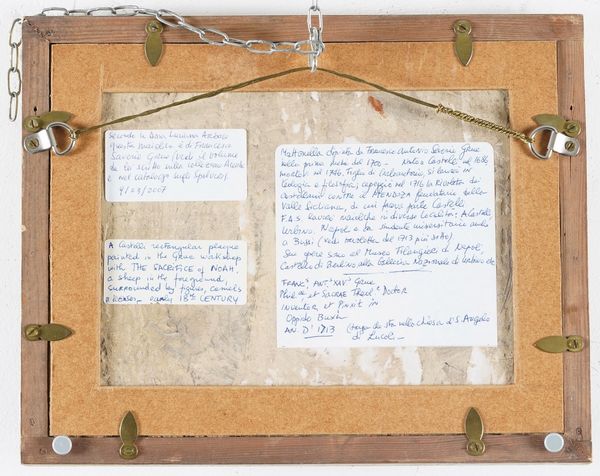 Secondo la Dott. Luciana Arbace
questa maiolica è di Francesco
Saverio Grue (vedi il volume
de la scritto sulla collezione
e nel catalogo sugli Spulveri.
9/28/2007
A Castelli rectangular plaque
painted in the Grue workshop
with THE SACRIFICE of NOAH.
a sheep in the foreground,
surrounded by figures, camels
a HORSES_ early 18th CENTURY
Mattonella dipinta da Francesco Antonio Saverio Grue
nella prima metà del 1700 - Nato a Castelli nel 1686
morto nel 1746, figlio di Carlantonio, si laureò in
teologia e filosofia, capeggiò nel 1716 la rivolta dei
castellani contro il MENDOZA feudatario della
Valle Siciliana, di cui faceva parte Castelli
F.A.S. lavorò maioliche in diverse località: A Castelli,
Urbino, Napoli e da studente universitario anche
a Bussi (vedi mattonella del 1713 più sotto)
Sue opere sono al Museo Filangieri di Napoli,
Castello di Berlino alla Galleria Nazionale di Urbino etc
FRANC. ANT. XAV. Grue
Phil. ae et SACRAE Theol. Doctor
Inventor et Pinxit in
Oppido Buxi
AN. D' 1713
di Lucoli -